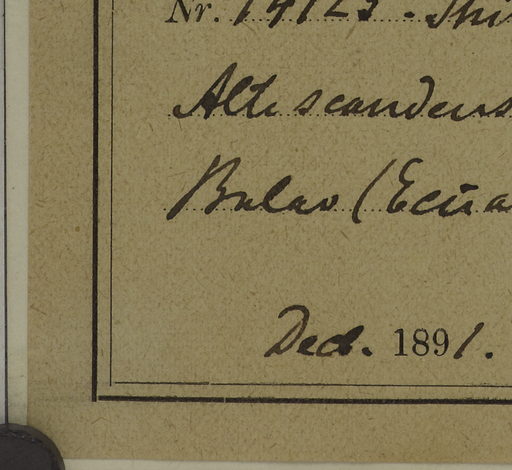 Nr. 14123.
Alte scandens
Balao (Ecua
Dec. 1891.